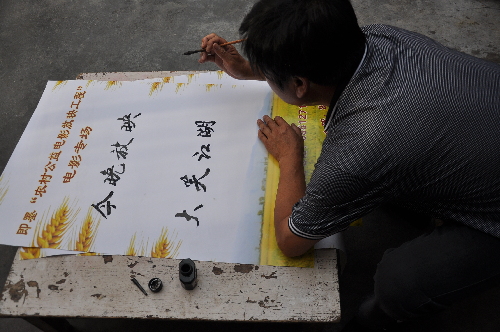 即墨“农村公益电影放映工程”
电影专场
今晚放映
大笑江湖